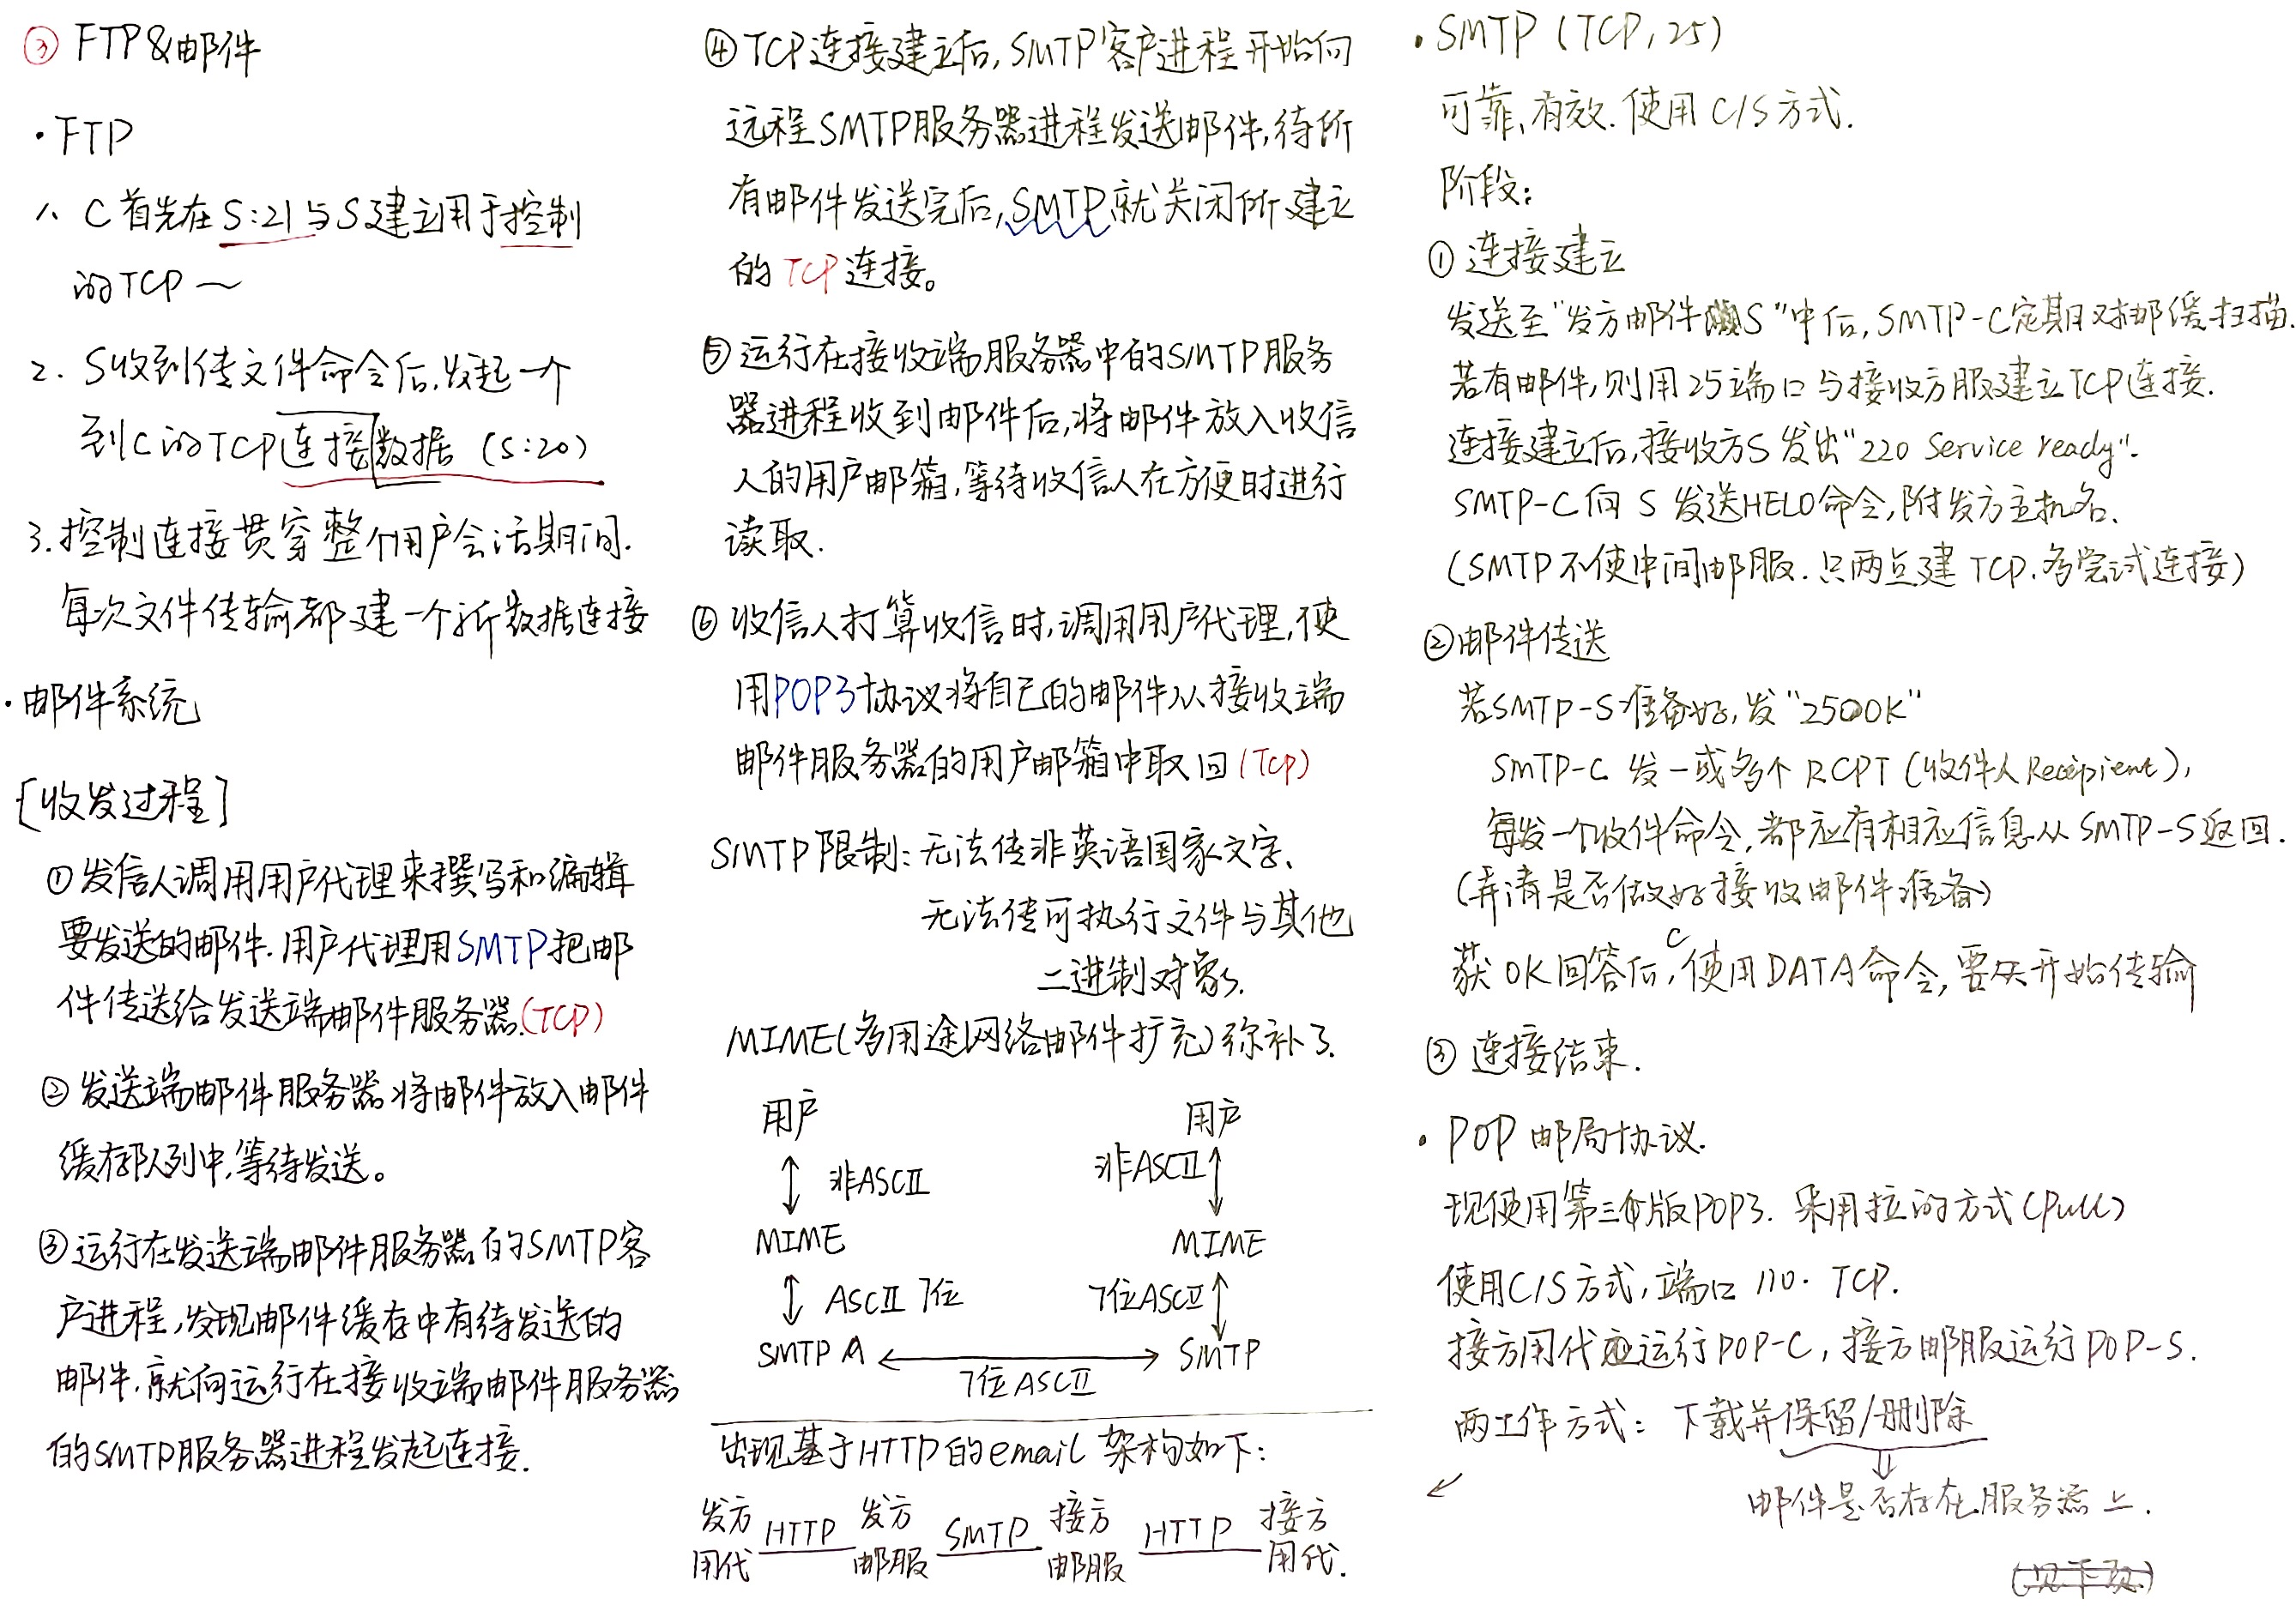 ③ FTP&邮件
·FTP
1. C首先在S:21与S建立用于控制
的TCP~
2. S收到传文件命令后,发起一个
到C的TCP连接数据 (S:20)
3.控制连接贯穿整个用户会话期间.
每次文件传输都建一个新数据连接
·邮件系统
[收发过程]
①发信人调用用户代理来撰写和编辑
要发送的邮件.用户代理用SMTP把邮
件传送给发送端邮件服务器.(TCP)
②发送端邮件服务器将邮件放入邮件
缓存队列中,等待发送。
③运行在发送端邮件服务器的SMTP客
户进程,发现邮件缓存中有待发送的
邮件,就向运行在接收端邮件服务器
的SMTP服务器进程发起连接.
④TCP连接建立后,SMTP客户进程开始向
远程SMTP服务器进程发送邮件,待所
有邮件发送完后,SMTP就关闭所建立
的TCP连接。
⑤运行在接收端服务器中的SMTP服务
器进程收到邮件后,将邮件放入收信
人的用户邮箱,等待收信人在方便时进行
读取.
⑥收信人打算收信时,调用用户代理,使
用POP3协议将自己的邮件从接收端
邮件服务器的用户邮箱中取回(TCP)
SMTP限制:无法传非英语国家文字、
无法传可执行文件与其他
二进制对象.
MIME(多用途网络邮件扩充)弥补了.
用户 用户
非ASCII 非ASCII
MIME MIME
ASCII 7位 7位ASCII
SMTP SMTP
7位ASCII
出现基于HTTP的email 架构如下:
发方 HTTP 发方 SMTP 接方 HTTP 接方
用代 邮服 邮服 用代.
·SMTP (TCP,25)
可靠、有效.使用C/S方式.
阶段:
①连接建立
发送至"发方邮件S"中后,SMTP-C定期对邮缓扫描.
若有邮件,则用25端口与接收方服建立TCP连接.
连接建立后,接收方S发出"220 Service ready".
SMTP-C向S发送HELO命令,附发方主机名.
(SMTP不使中间邮服.只两点建TCP.多尝试连接)
②邮件传送
若SMTP-S准备好,发"250OK"
SMTP-C 发一或多个RCPT(收件人Recipient),
每发一个收件命令,都应有相应信息从SMTP-S返回.
(弄清是否做好接收邮件准备)
获OK回答后,C使用DATA命令,要开始传输
③连接结束.
·POP邮局协议.
现使用第三版POP3. 采用拉的方式(Pull)
使用C/S方式,端口110. TCP.
接方用代运行POP-C,接方邮服运行POP-S.
两工作方式: 下载并保留/删除
邮件是否存在服务器上.
(见下页)